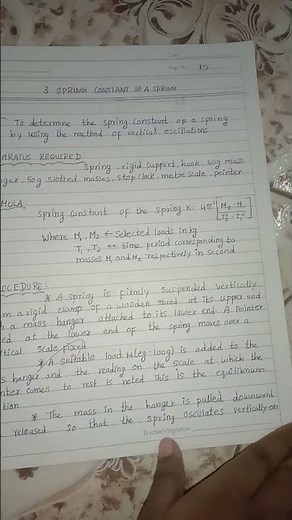 Date
Page No. 15
3 SPRING CONSTANT OF A SPRING
To determine the spring constant of a spring
by using the method of vertical oscillations
ARATUS REQUIRED
Spring, rigid support, hook, 50g mass
nger, 50g slotted masses, stop clock, metre scale, pointer
MULA,
Spring constant of the spring K = 4π² [M₂-M₁ / T₂²-T₁²]
Where M₁, M₂ ← selected loads in kg
T₁, T₂ ↔ time period corresponding to
masses M₁ and M₂ respectively in second
OCEDURE:
* A spring is firmly suspended vertically
m a rigid clamp of a wooden stand at its upper end
a mass hanger attached to its lower end. A pointer
ed at the lower end of the spring moves over a
tical scale, fixed
* A suitable load M (eg-100g) is added to the
s hanger and the reading on the scale at which the
nter comes to rest is noted This is the equilibrium
tion
* The mass in the hanger is pulled downward
released so that the spring oscillates vertically on
Teacher's Signature